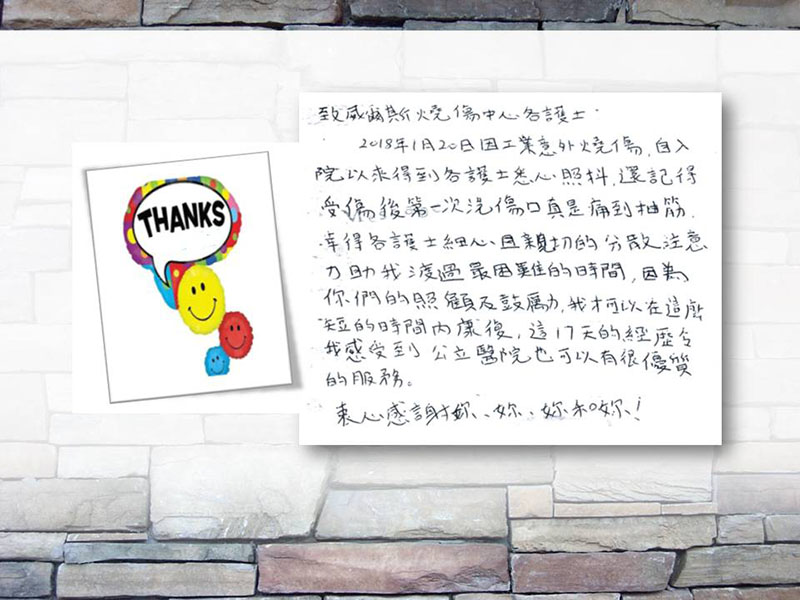 THANKS
致威爾斯燒傷中心各護士:
2018年1月20日因工業意外燒傷,自入
院以來得到各護士悉心照抖,還記得
受傷後第一次洗傷口真是痛到抽筋,
幸得各護士細心且親切的分散注意
力助我渡過最困難的時間,因為
你們的照顧及鼓勵,我才可以在這麼
短的時間內康復,這17天的經歷令
我感受到公立醫院也可以有很優質
的服務。
衷心感謝妳、妳、妳和妳!